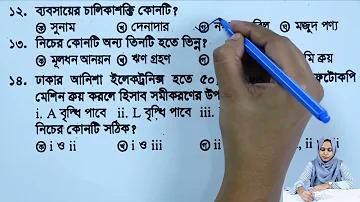 ১২. ব্যবসায়ের চালিকাশক্তি কোনটি?
ক সুনাম খ দেনাদার ঘ মজুদ পণ্য
১৩. নিচের কোনটি অন্য তিনটি হতে ভিন্ন?
ক মূলধন আনয়ন খ ঋণ গ্রহণ ক্রয়
১৪. ঢাকার আনিশা ইলেকট্রনিক্স হতে ৫০ ফটোকপি
মেশিন ক্রয় করলে হিসাব সমীকরণের
i. A বৃদ্ধি পাবে ii. L বৃদ্ধি পাবে
নিচের কোনটি সঠিক?
ক i ও ii খ i ও iii ii